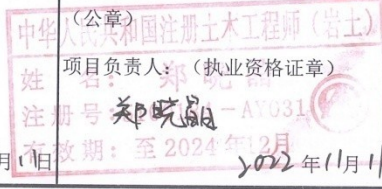 （公章）
中华人民共和国注册土木工程师（岩土）
项目负责人：（执业资格证章）
姓名：郑晓晶
注册号： -AY031
郑晓晶
有效期：至2024年12月
月11日
2022年11月11